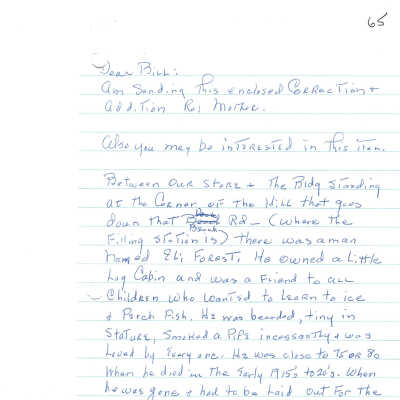 65
Dear Bill:
Am Sending This enclosed Correction +
addition Re; Mother.
Also you may be interested in this item.
Between our Store + The Bldg Standing
at the Corner of the Hill that goes
down that Beach Rd - (where the
Filling Station is) there was a man
named Eli Forest. He owned a Little
Log Cabin and was a Friend to all
Children who wanted to Learn to ice
+ Perch Fish. He was bearded, tiny in
Stature, Smoked a Pipe incessantly + was
Loved by Every one. He was close to 75 or 80
When he died in the Early 1915's to 20's. When
he was gone + had to be laid out For the